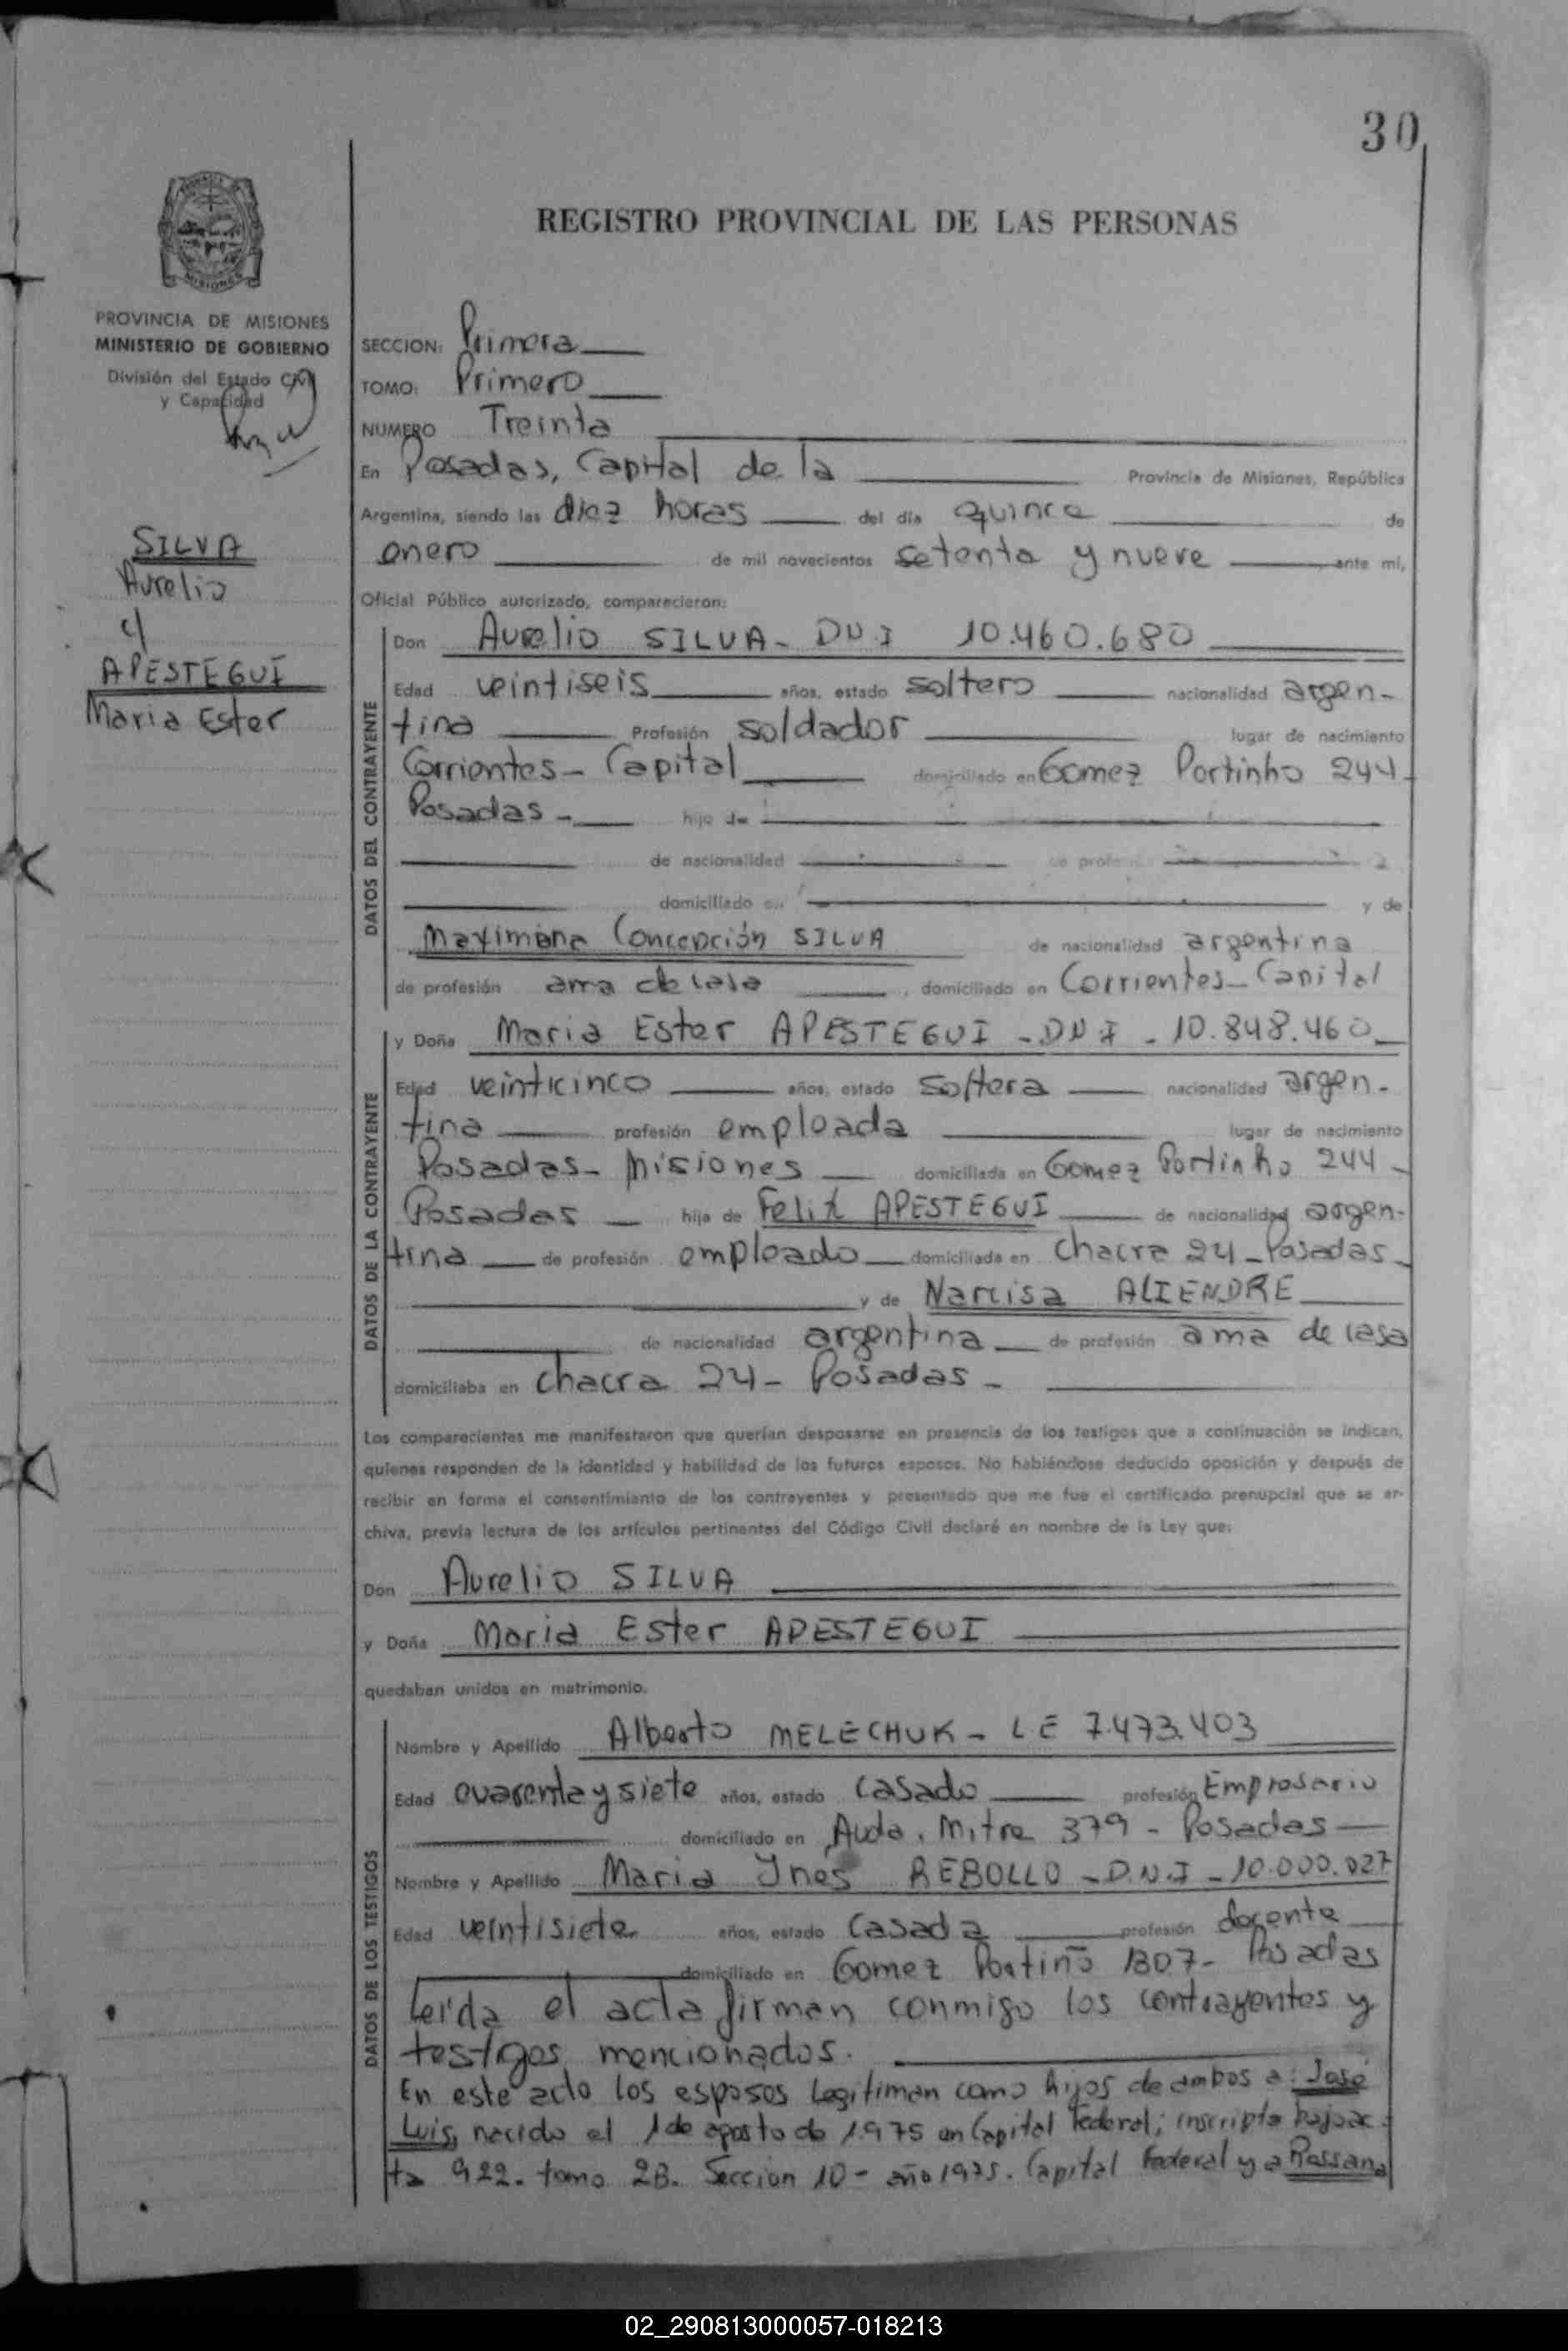 30
REGISTRO PROVINCIAL DE LAS PERSONAS
MISIONES
PROVINCIA DE MISIONES
MINISTERIO DE GOBIERNO
División del Estado Civil
y Capacidad
SILVA
Aurelio
c/
APESTEGUI
Maria Ester
SECCION: Primera
TOMO: Primero
NUMERO Treinta
En Posadas, Capital de la Provincia de Misiones, República
Argentina, siendo las diez horas del día quince de
enero de mil novecientos setenta y nueve ante mi,
Oficial Público autorizado, comparecieron:
DATOS DEL CONTRAYENTE
Don Aurelio SILVA - DNI 10.460.680
Edad veintiseis años, estado soltero nacionalidad argen-
tina Profesión soldador lugar de nacimiento
Corrientes - Capital domiciliado en Gomez Portinho 244
Posadas - hijo de
de nacionalidad de profesión
domiciliado en y de
Maximiana Concepción SILVA de nacionalidad argentina
de profesión ama de casa domiciliado en Corrientes - Capital
DATOS DE LA CONTRAYENTE
y Doña Maria Ester APESTEGUI - DNI - 10.848.460
Edad veinticinco años, estado soltera nacionalidad argen-
tina profesión empleada lugar de nacimiento
Posadas - Misiones domiciliada en Gomez Portinho 244 -
Posadas hija de Felix APESTEGUI de nacionalidad argen-
tina de profesión empleado domiciliada en chacra 24 - Posadas -
y de Narcisa ALIENDRE
de nacionalidad argentina de profesión ama de casa
domiciliaba en chacra 24 - Posadas -
Los comparecientes me manifestaron que querían desposarse en presencia de los testigos que a continuación se indican,
quienes responden de la identidad y habilidad de los futuros esposos. No habiéndose deducido oposición y después de
recibir en forma el consentimiento de los contrayentes y presentado que me fue el certificado prenupcial que se ar-
chiva, previa lectura de los artículos pertinentes del Código Civil declaré en nombre de la Ley que:
Don Aurelio SILVA
y Doña Maria Ester APESTEGUI
quedaban unidos en matrimonio.
DATOS DE LOS TESTIGOS
Nombre y Apellido Alberto MELECHUK - LE 7.473.403
Edad cuarenta y siete años, estado casado profesión Empresario
domiciliado en Avda. Mitre 379 - Posadas
Nombre y Apellido Maria Ynes REBOLLO - D.N.I - 10.000.027
Edad veintisiete años, estado casada profesión docente
domiciliado en Gomez Portiño 1307 - Posadas
Leída el acta firman conmigo los contrayentes y
testigos mencionados.
En este acto los esposos legitiman como hijos de ambos a: José
Luis, nacido el 1 de agosto de 1975 en Capital Federal; inscripto bajo ac-
ta 922. tomo 2B. Seccion 10 - año 1975. Capital Federal y a Rossana
02_290813000057-018213